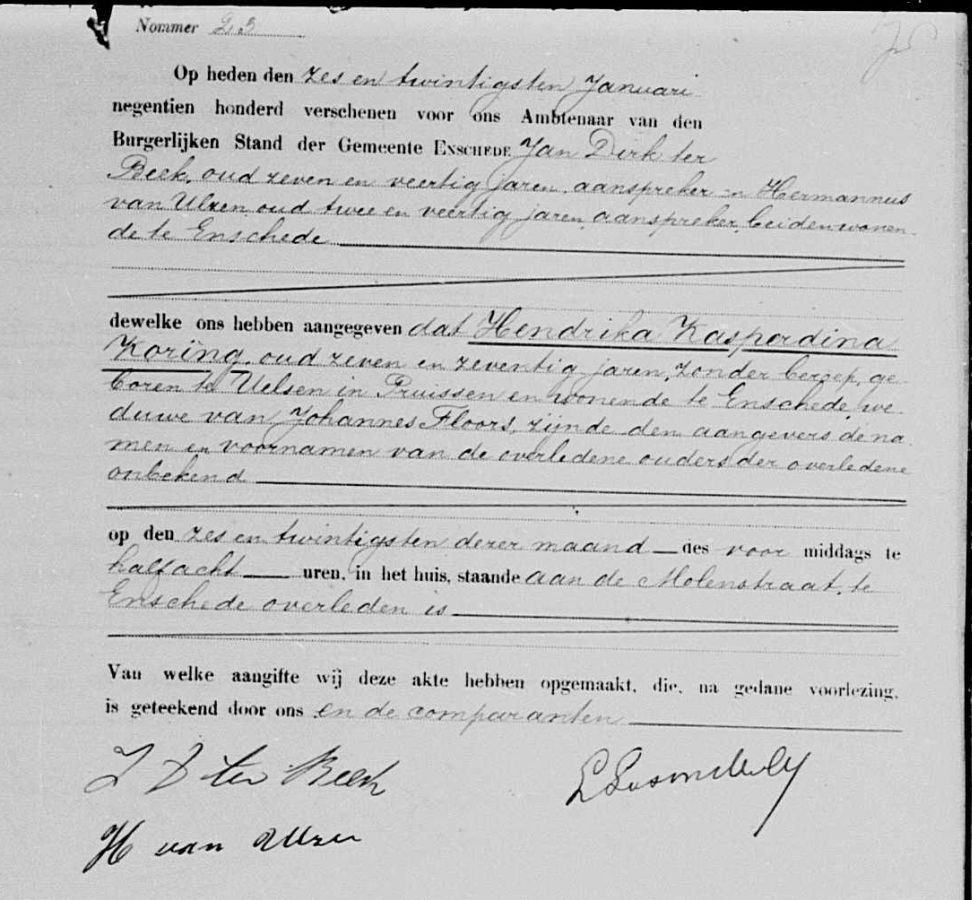 Nommer 23
Op heden den zes en twintigsten Januari
negentien honderd verschenen voor ons Ambtenaar van den
Burgerlijken Stand der Gemeente ENSCHEDE Jan Dirk ter
Beek, oud zeven en veertig jaren, aanspreker en Hermannus
van Ulzen oud twee en veertig jaren, aanspreker, beiden wonen
de te Enschede
dewelke ons hebben aangegeven dat Hendrika Kasperdina
Koring, oud zeven en zeventig jaren, zonder beroep, ge
boren te Uelsen in Pruissen en wonende te Enschede, we
duwe van Johannes Floors, zijnde den aangevers de na
men en voornamen van de overledene ouders der overledene
onbekend
op den zes en twintigsten dezer maand des voor middags te
half acht uren, in het huis, staande aan de Molenstraat, te
Enschede overleden is
Van welke aangifte wij deze akte hebben opgemaakt, die, na gedane voorlezing,
is geteekend door ons en de comparanten
J D ter Beek
H van Ulzen